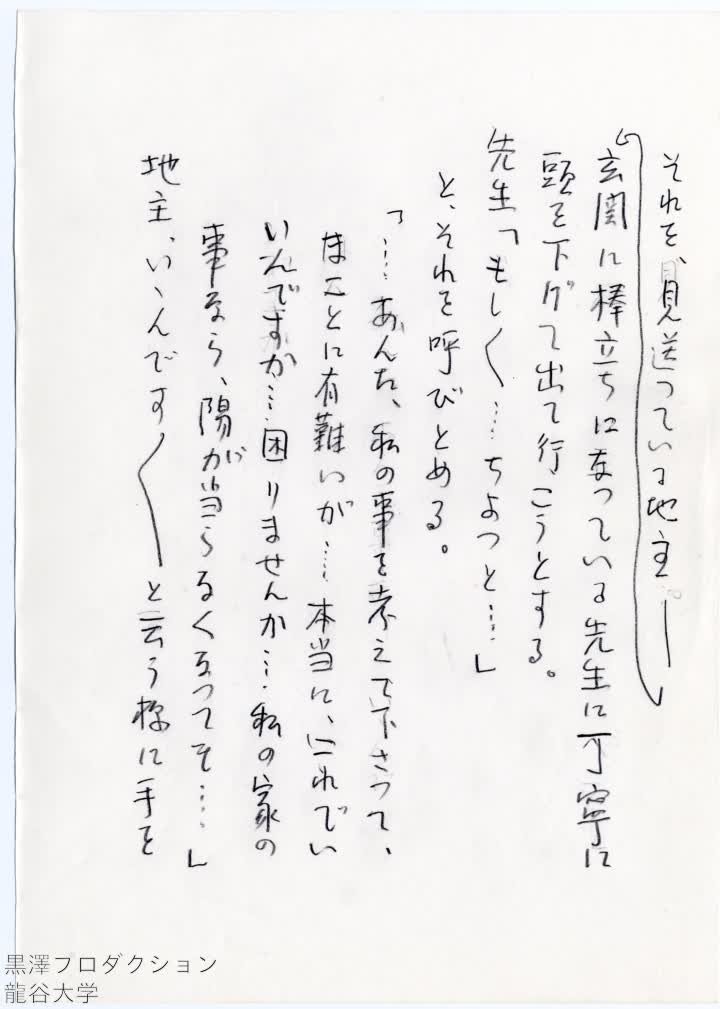 それを、見送っている地主。
玄関に棒立ちになっている先生に丁寧に
頭を下げて出て行こうとする。
先生「もし〱…ちよつと…」
と、それを呼びとめる。
「…あんた、私の事を考えて下さって、
まことに有難いが…本当に、これでい
いんですか…困りませんか…私の家の
事なら、陽が当らなくなつても…」
地主、いゝんです〱と云う様に手を
黒澤プロダクション
龍谷大学